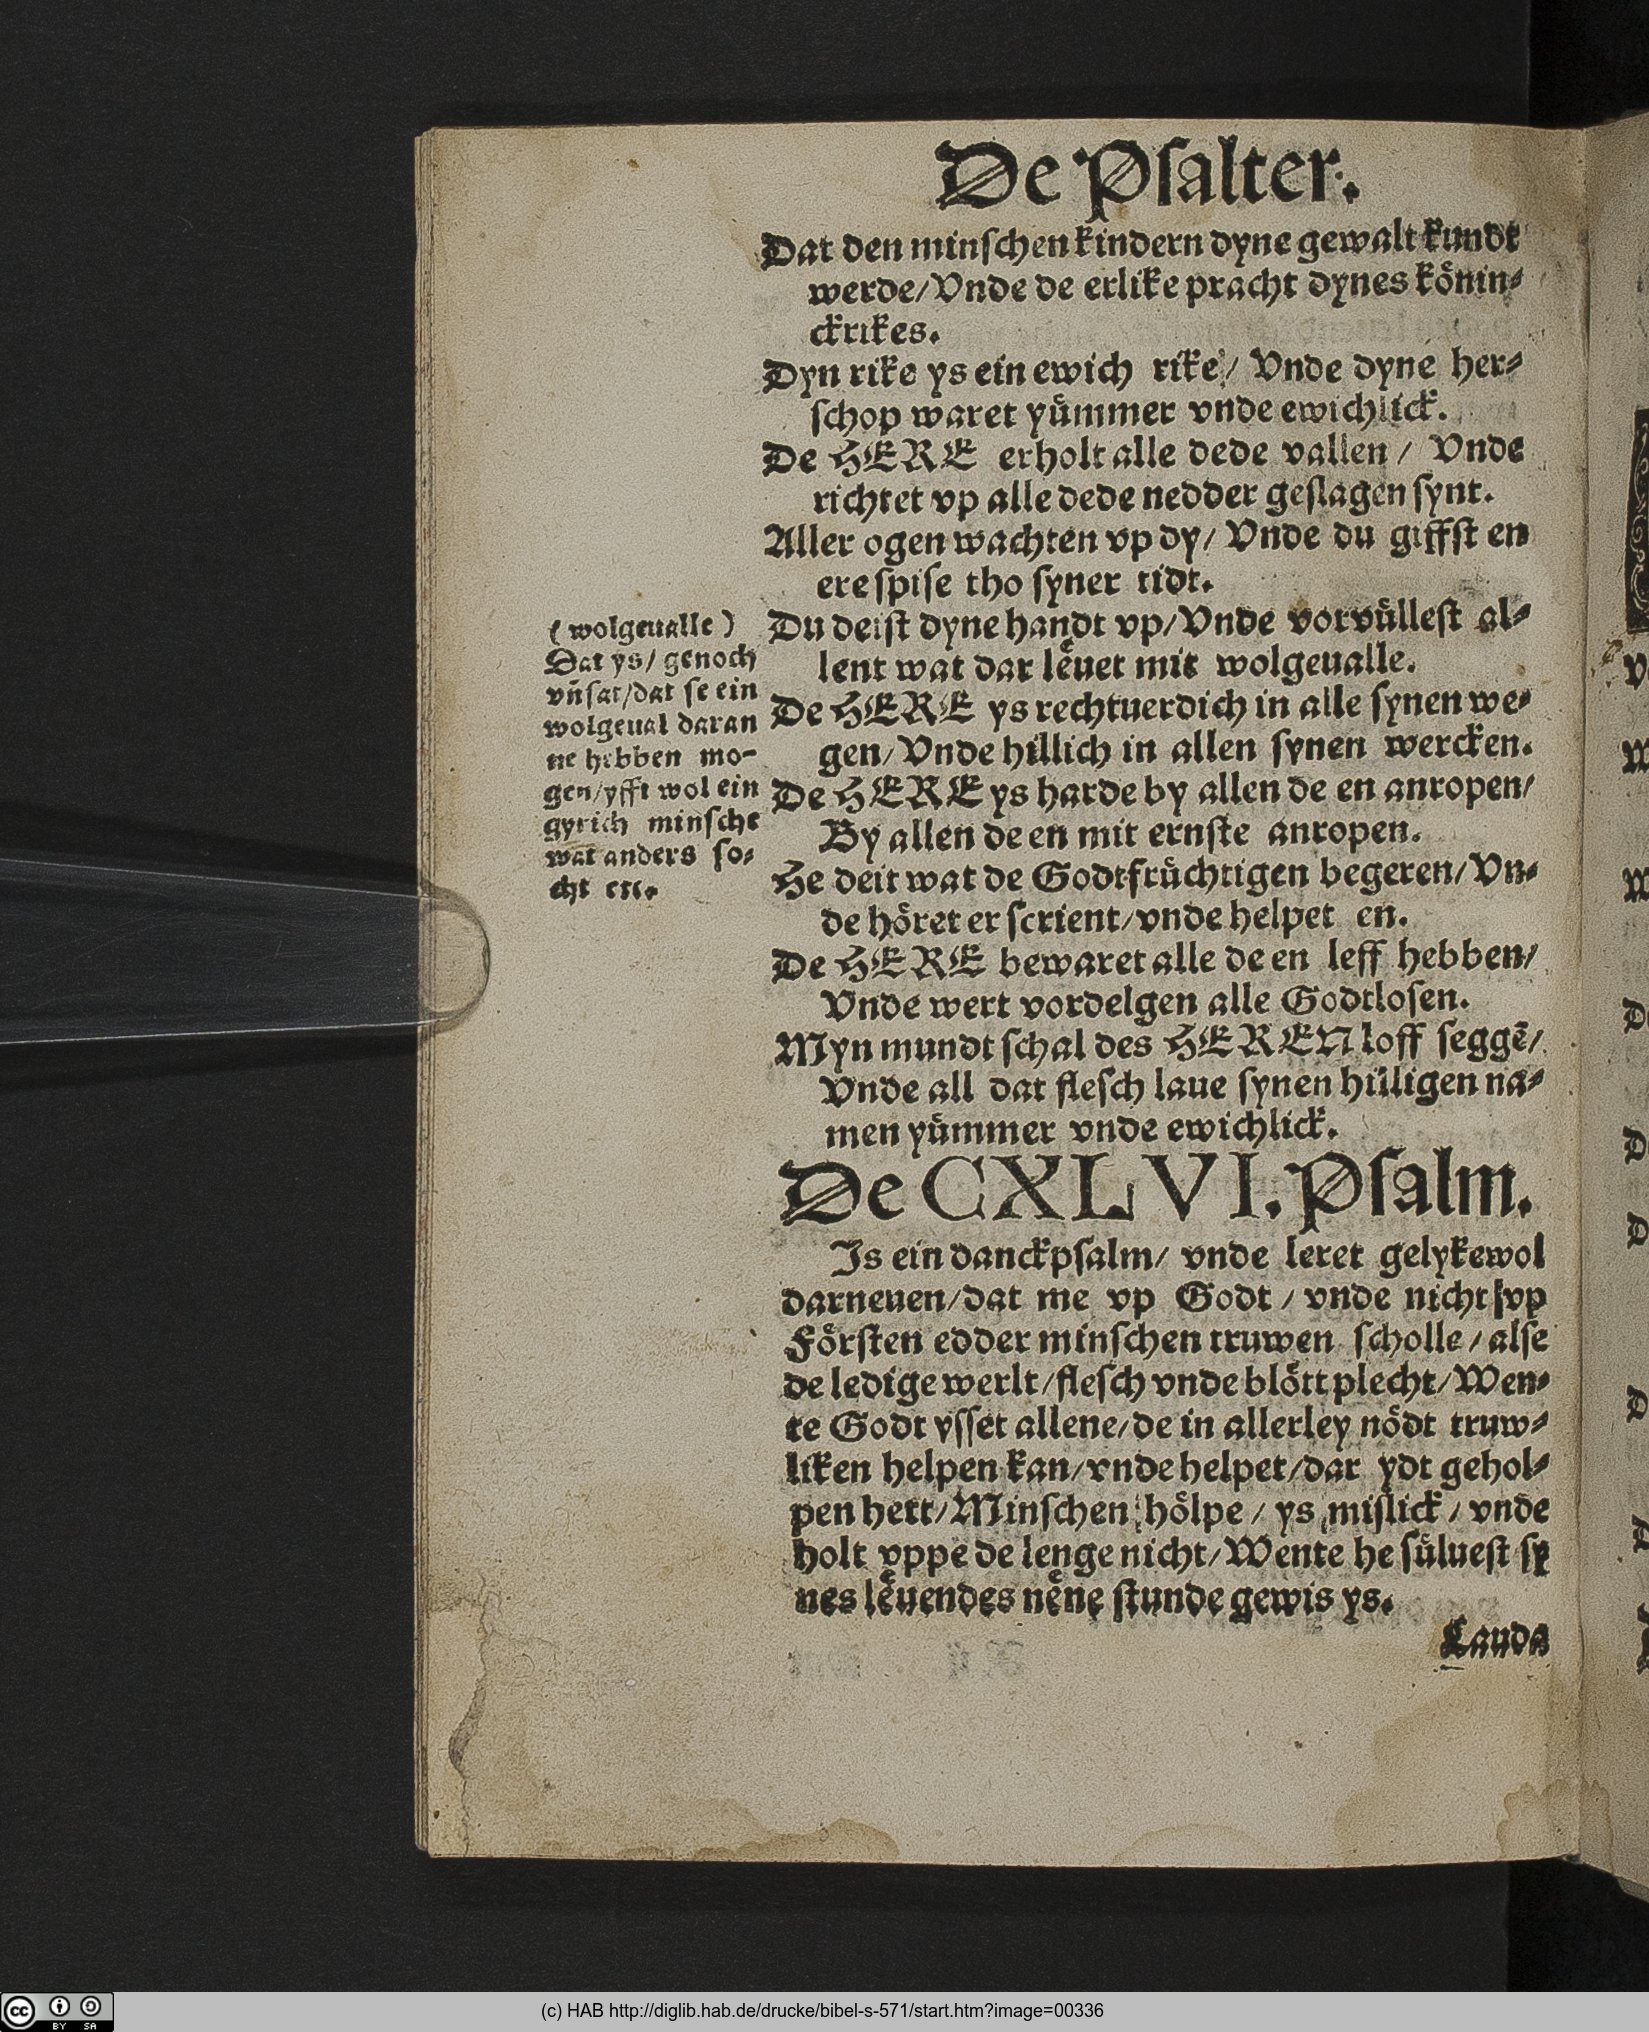 De Psalter.
Dat den minschen kindern dyne gewalt kundt
werde/ Vnde de erlike pracht dynes könin⸗
ckrikes.
Dyn rike ys ein ewich rike/ Vnde dyne her⸗
schop waret yümmer vnde ewichlick.
De HERE erholt alle dede vallen/ Vnde
richtet vp alle dede nedder geslagen synt.
Aller ogen wachten vp dy/ Vnde du giffst en
ere spise tho syner tidt.
Du deist dyne handt vp/ Vnde vorvüllest al⸗
lent wat dar leͤuet mit wolgeualle.
De HERE ys rechtuerdich in alle synen we⸗
gen/ Vnde hillich in allen synen wercken.
De HERE ys harde by allen de en anropen/
By allen de en mit ernste anropen.
He deit wat de Godtfrüchtigen begeren/ Vn⸗
de höret er scrient/ vnde helpet en.
De HERE bewaret alle de en leff hebben/
Vnde wert vordelgen alle Godtlosen.
Myn mundt schal des HEREN loff seggē/
Vnde all dat flesch laue synen hilligen na⸗
men yümmer vnde ewichlick.
(wolgeualle)
Dat ys/ genoch
vn̄ sat/ dat se ein
wolgeual daran
ne hebben mo-
gen/ yfft wol ein
gyrich minsche
wat anders so⸗
cht etc.
De CXLVI. Psalm.
Is ein danckpsalm/ vnde leret gelykewol
darneuen/ dat me vp Godt/ vnde nicht vp
Försten edder minschen truwen scholle/ alse
de ledige werlt/ flesch vnde blött plecht/ Wen⸗
te Godt ysset allene/ de in allerley nödt truw⸗
liken helpen kan/ vnde helpet/ dar ydt gehol⸗
pen hett/ Minschen hölpe/ ys mislick/ vnde
holt vppe de lenge nicht/ Wente he süluest sy
nes leͤuendes neͤne stunde gewis ys.
Lauda
(c) HAB http://diglib.hab.de/drucke/bibel-s-571/start.htm?image=00336
cc BY SA